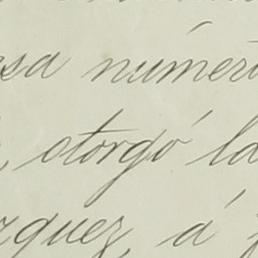 esa númer
, otorgó la
zquez, á